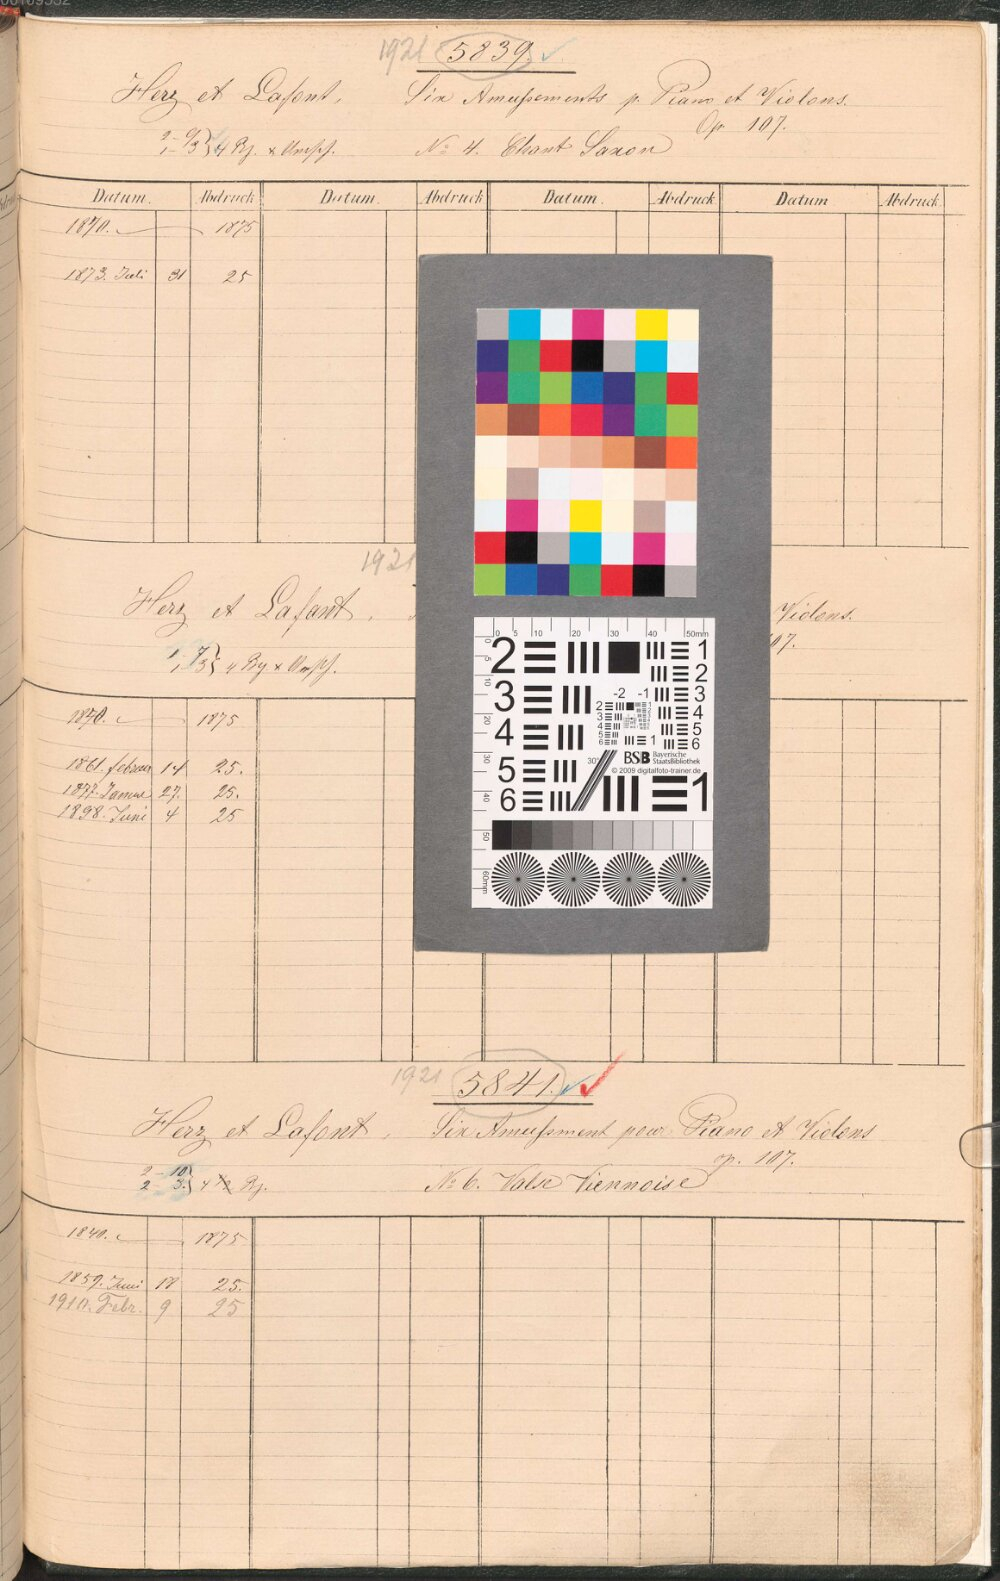 1921 5839.
Herz et Lafont. Six Amusements p. Piano et Violons.
Op. 107.
No 4. Chant Saxon
Datum. Abdruck Datum. Abdruck Datum. Abdruck Datum Abdruck.
1840. 1875
1873. Juli 31 25
1921
Herz et Lafont. Violons.
07.
1840. 1875
1861. Februar 14 25.
1877. Januar 27. 25.
1898. Juni 4 25
0 5 10 20 30 40 50mm
2 1
2
3 -2 -1 3
4 4
5
6
5 30° BSB Bayerische
StaatsBibliothek
© 2009 digitalfoto-trainer.de
6 1
1921 5841.
Herz et Lafont. Six Amusement pour Piano et Violons
op. 107.
No 6. Valse Viennoise
1840. 1875
1859. Juni 18 25.
1910. Febr. 9 25